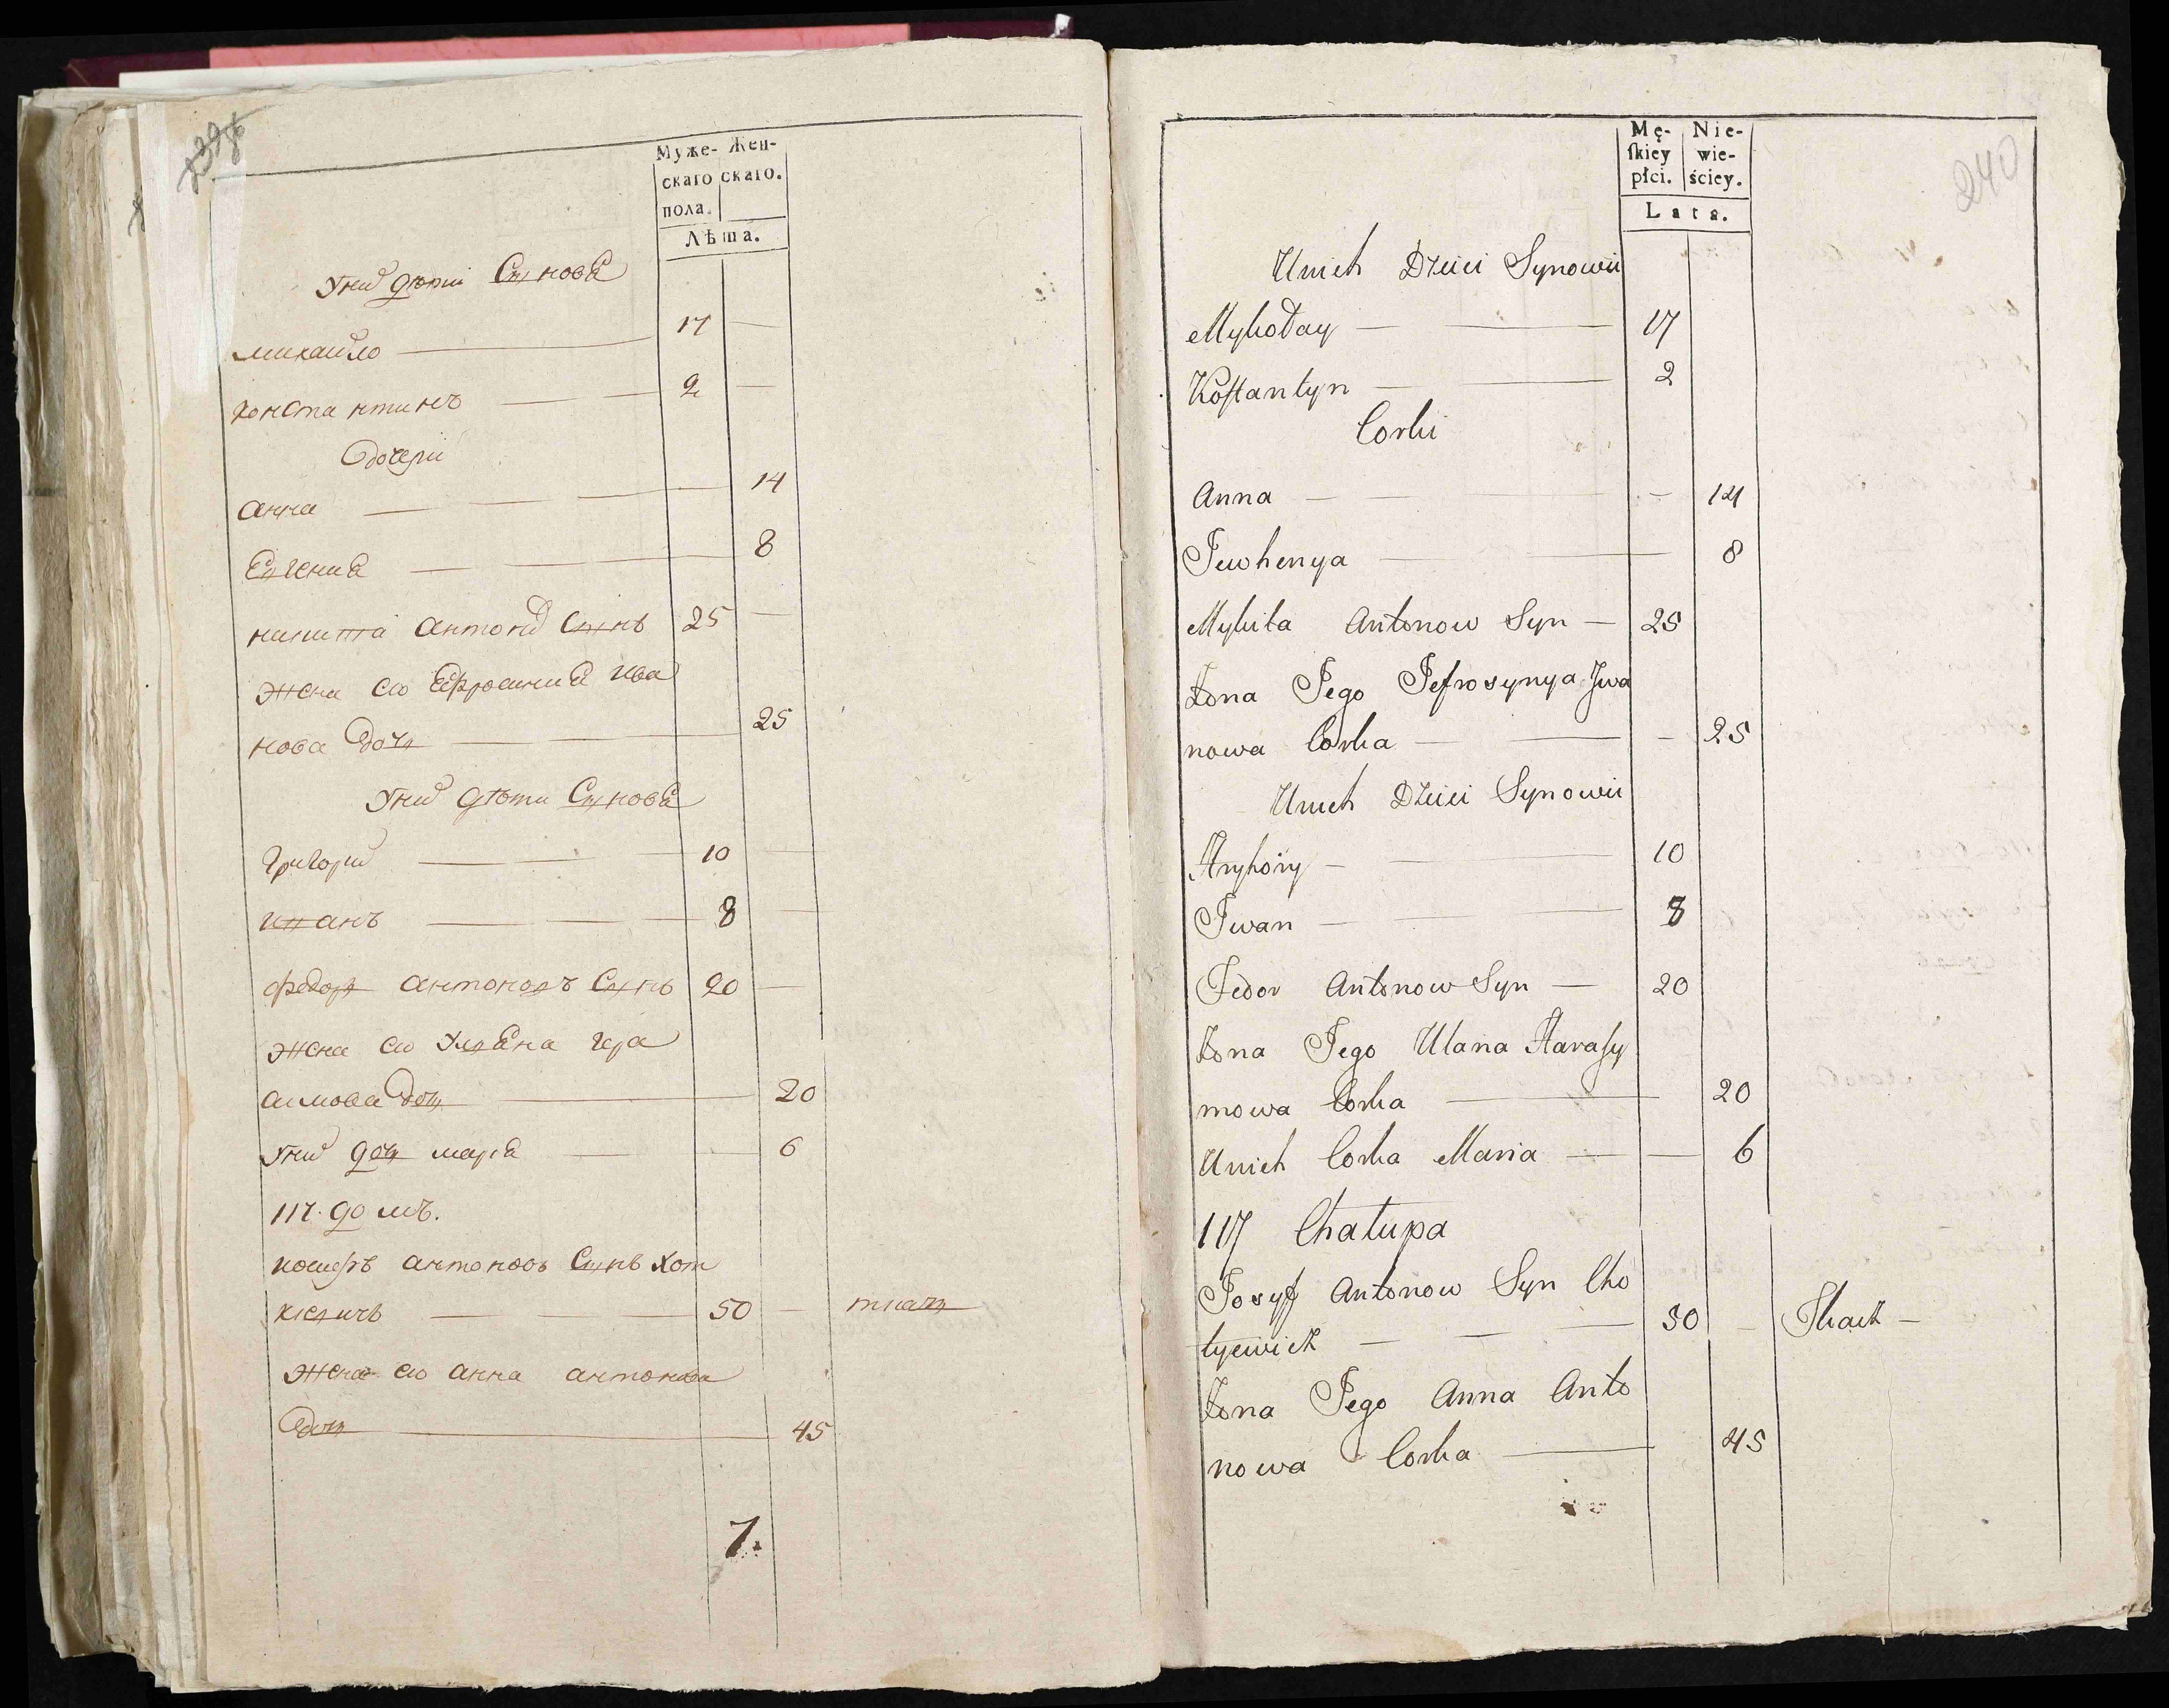 Муже- Жен-
скаго скаго.
пола.
Лѣта.
У них дѣти Сыновя
михайло — 17 —
константинъ — 2 —
Дочери
анна — 14
Евгения — 8
никита антонов Сынъ 25 —
жена его Ефросиния ива
нова дочь — 25
У них дѣти Сыновя
григорий — 10 —
иванъ — 8 —
федор антоновъ Сынъ 20 —
жена его Уляна гера
симова дочь — 20
У них дочь мария — 6
117. домъ.
антоновъ Сынъ хот
кѣвичъ — 50 — ткачь
жена его анна антонова
дочь — 45
7.
240
Mę- Nie-
ſkiey wie-
płci. ściey.
Lata.
Unich Dzieci Synowii
Mykołay — 17
Koſtantyn — 2
Corki
Anna — 14
Jewhenya — 8
Mykita Antonow Syn — 25
Żona Jego Jefrosynya Jwa
nowa Corka — 25
Unich Dzieci Synowii
Hryhory — 10
Jwan — 8
Fedor Antonow Syn — 20
Żona Jego Ulana Haraſy
mowa Corka — 20
Unich Corka Maria — 6
117 Chałupa
Josyff Antonow Syn Cho
tyewicz — 50 — Tkacz —
Żona Jego Anna Anto
nowa Corka — 45